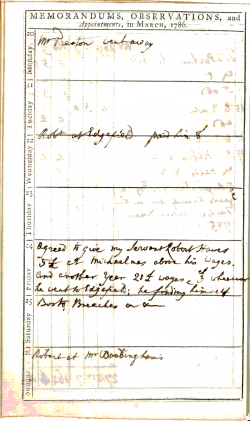 MEMORANDUMS, OBSERVATIONS, and
Appointments, in MARCH, 1786.
20
Monday
Mr Preston went away
21
Tuesday
22
Wednesday
Robt at Edgefield paid him
23
Thursday
24
Friday
agreed to give my Servant Robert
at Michaelmas above his wages.
and another Year wages
he went to Edgefield; he finding himself
25
Saturday
Boots, Breeches
26
Sunday
Robert at Mr